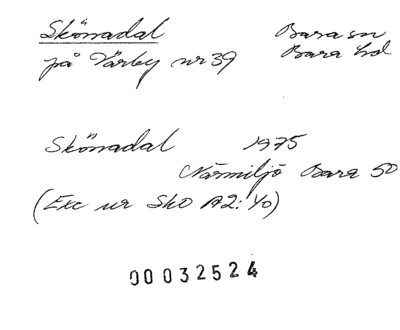 Skönadal Bara sn
på Värby nr 39 Bara hd
Skönadal 1975
Närmiljö Bara 50
(Exc ur Sko A2:40)
00032524